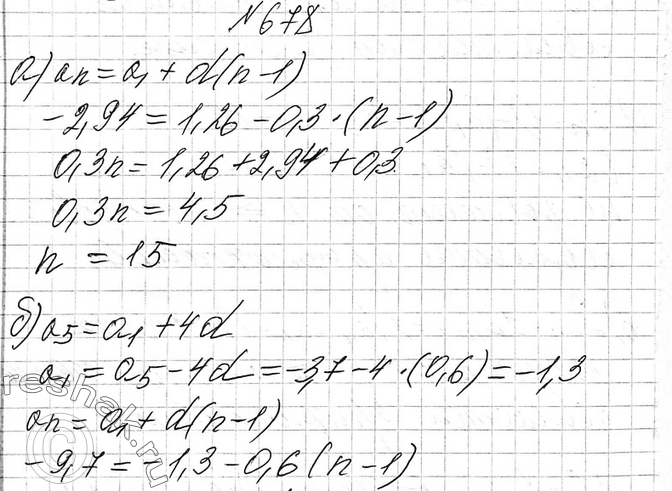 №678
а) an = a1 + d(n-1)
-2,94 = 1,26 - 0,3·(n-1)
0,3n = 1,26 + 2,94 + 0,3
0,3n = 4,5
n = 15
б) a5 = a1 + 4d
a1 = a5 - 4d = -3,7 - 4·(0,6) = -1,3
an = a1 + d(n-1)
-9,7 = -1,3 - 0,6(n-1)
reshak.ru